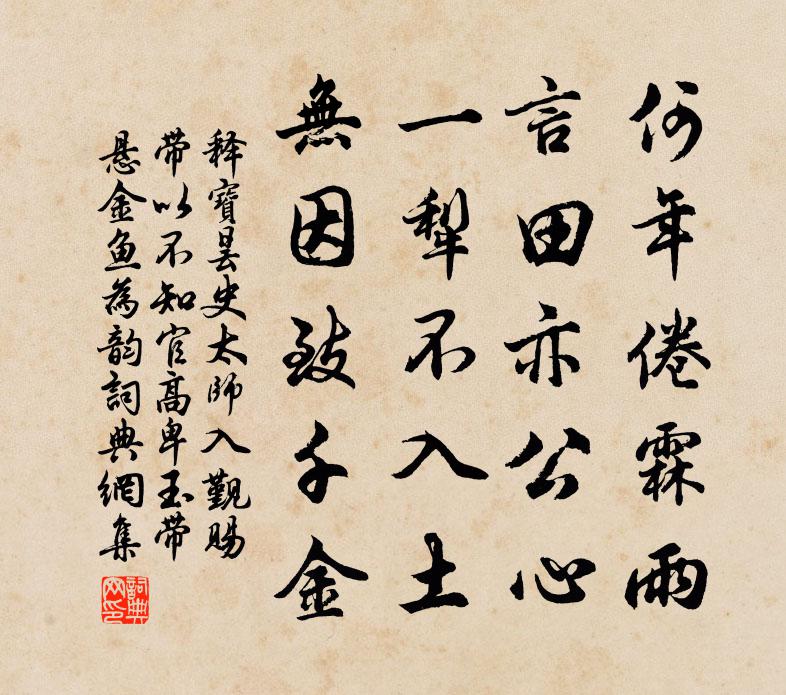 何年倦霖雨
言田亦公心
一犁不入土
無因致千金
释寶曇史太師入覲賜
带以不知官高卑玉带
悬金魚為韵詞典網集
詞典网印